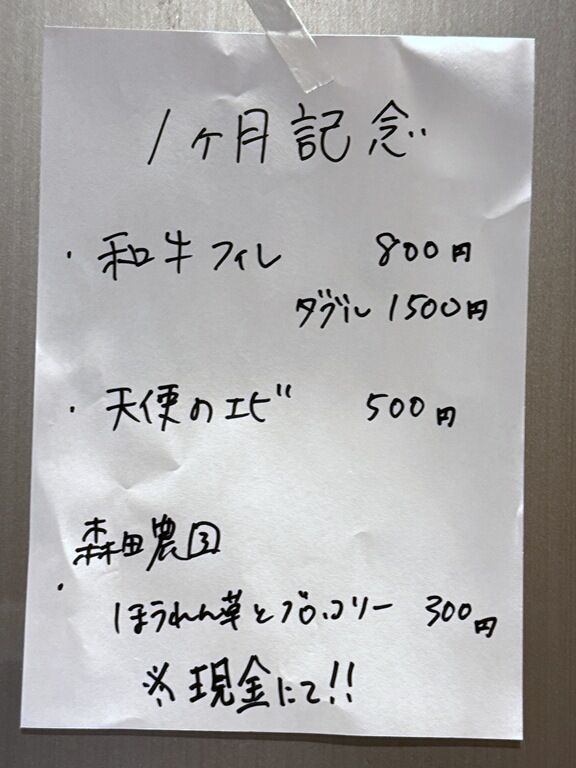 1ヶ月記念
・和牛フィレ 800円
ダブル 1500円
・天使のエビ 500円
森田農園
・ほうれん草とブロッコリー 300円
※現金にて!!